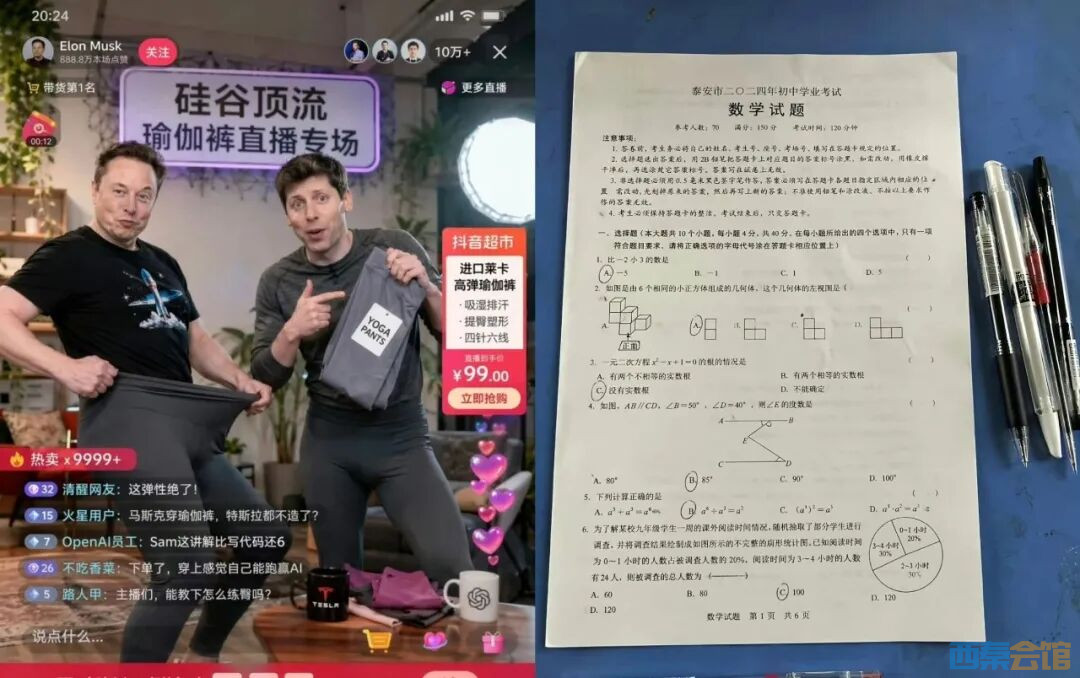 20:24
Elon Musk
888.8万本场点赞
关注
10万+
带货第1名
更多直播
00:12
硅谷顶流
瑜伽裤直播专场
抖音超市
进口莱卡
高弹瑜伽裤
·吸湿排汗
·提臀塑形
·四针六线
直播到手价
¥99.00
立即抢购
YOGA
PANTS
热卖 x9999+
32 清醒网友：这弹性绝了！
15 火星用户：马斯克穿瑜伽裤，特斯拉都不造了？
7 OpenAI员工：Sam这讲解比写代码还6
26 不吃香菜：下单了，穿上感觉自己能跑赢AI
5 路人甲：主播们，能教下怎么练臀吗？
TESLA
说点什么...
泰安市二〇二四年初中学业考试
数学试题
参考人数：70 满分：150分 考试时间：120分钟
注意事项：
1. 答卷前，考生务必将自己的姓名、考生号、座号、考场号、填写在答题卡规定的位置。
2. 选择题选出答案后，用2B铅笔把答题卡上对应题目的答案标号涂黑，如需改动，用橡皮擦
干净后，再选涂其它答案标号。答案写在试卷上无效。
3. 非选择题必须用0.5毫米黑色签字笔作答，答案必须写在答题卡各题目指定区域内相应的位
置，需改动，先划掉原来的答案，然后再写上新的答案；不准使用铅笔和涂改液。不按以上要求作
作的答案无效。
4. 考生必须保持答题卡的整洁。考试结束后，只交答题卡。
一、选择题（本大题共10个小题，每小题4分，共40分。在每小题所给出的四个选项中，只有一项
符合题目要求，请将正确选项的字母代号涂在答题卡相应位置上）
1. 比－2小3的数是 （ ）
A. －5 B. －1 C. 1 D. 5
2. 如图是由6个相同的小正方体组成的几何体，这个几何体的左视图是（ ）
A. B. C. D.
正面
3. 一元二次方程x²－x＋1＝0的根的情况是 （ ）
A. 有两个不相等的实数根 B. 有两个相等的实数根
C. 没有实数根 D. 不能确定
4. 如图，AB∥CD，∠B＝50°，∠D＝40°，则∠E的度数是 （ ）
A B
E
C D
A. 80° B. 85° C. 90° D. 100°
5. 下列计算正确的是 （ ）
A. a³＋a³＝a⁶ B. a⁶÷a³＝a² C. (a³)²＝a⁵ D. a³·a²＝a⁵
6. 为了解某校九年级学生一周的课外阅读时间情况，随机抽取了部分学生进行
调查，并将调查结果绘制成如图所示的不完整的扇形统计图。已知阅读时间
为0~1小时的人数占被调查人数的20%，阅读时间为3~4小时的人数
有24人，则被调查的总人数为（ ）
0~1小时
20%
3~4小时
30%
2~3小时
30%
A. 60 B. 80 C. 100 D. 120
D. 120
数学试题 第1页 共6页
西秦会馆